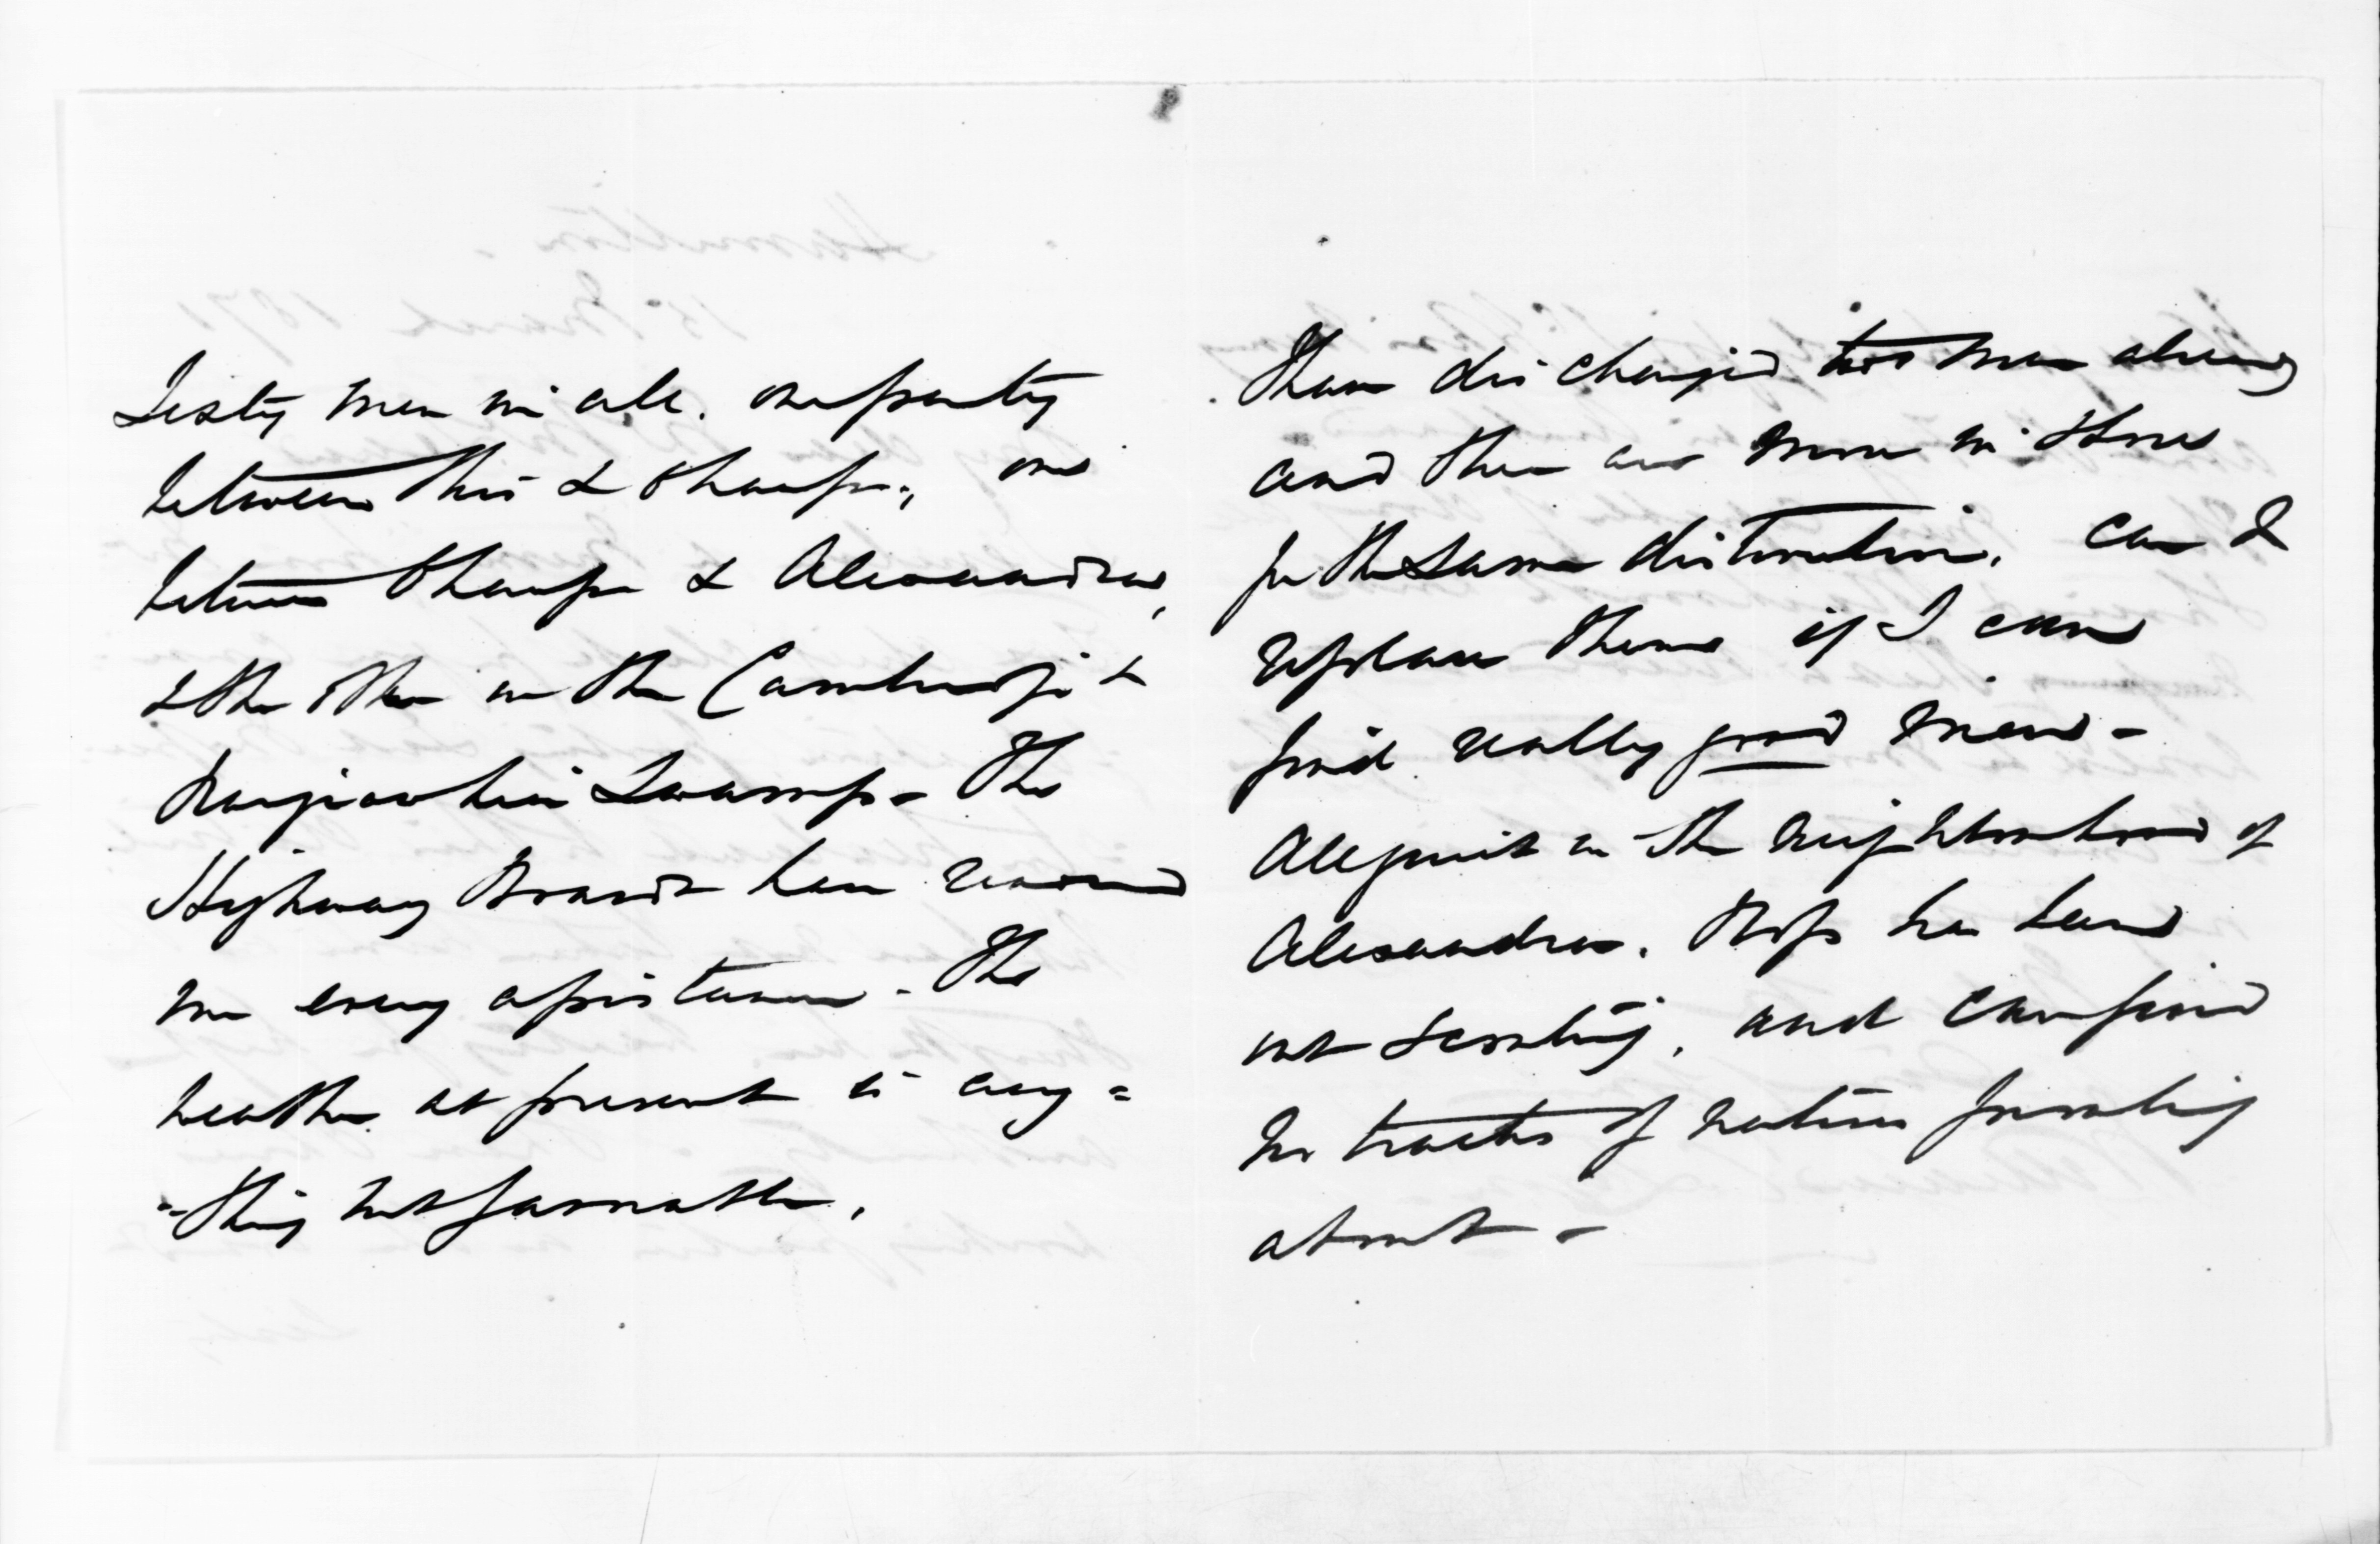 Sixty men in all. one party
between this & Ohaupo, one
between Ohaupo & Alexandra,
& the other on the Cambridge &
Rangiaohia Swamp - The
Highway Boards have
me every assistance. The
weather at present is any=
=thing but favorable.
I have discharged two men already
and there are more in Store
for the same distination. Can I
replace them if I can
find really good men -
All quiet in the neighbourhood of
Alexandra. Ross has been
out scouting, and can find
no traces of natives prowling
about -